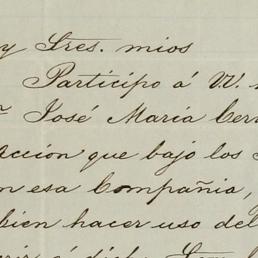 y Sres. mios
Participo á VV.
José María Cer
acción que bajo los
n esa Compañia,
bien hacer uso del
rir á dicho